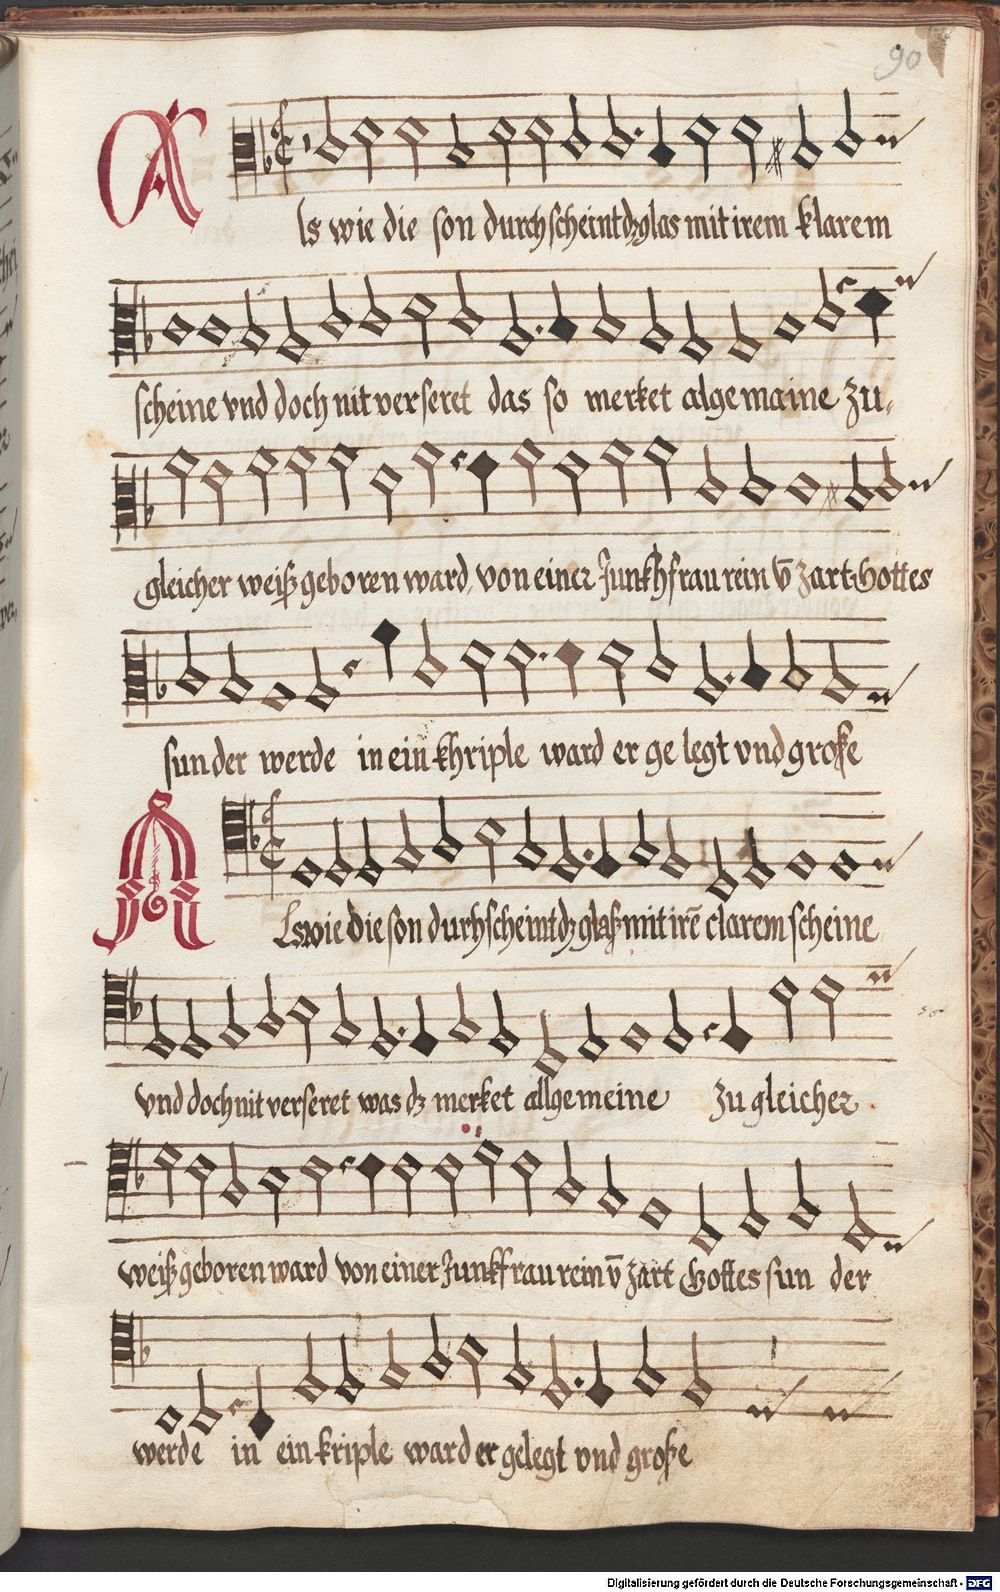 90
Als wie die son durchscheint dz glas mit irem klarem
scheine vnd doch nit verseret das so merket algemaine zu
gleicher weiß geboren ward, von einer Junkhfrau rein v̄ zart Gottes
sun der werde in ein khriple ward er gelegt vnd große
Als wie die son durchscheint dz glaß mit irē clarem scheine
vnd doch nit verseret was dz merket allgemeine zu gleicher
weiß geboren ward von einer Junkfrau rein v̄ zart Gottes sun der
werde in ein kriple ward er gelegt vnd große
Digitalisierung gefördert durch die Deutsche Forschungsgemeinschaft - DFG